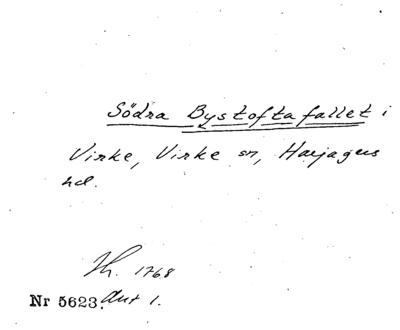 Södra Bystoftafallet i
Virke, Virke sn, Harjagers
hd.
Th. 1768
Nr 5623. Akt 1.